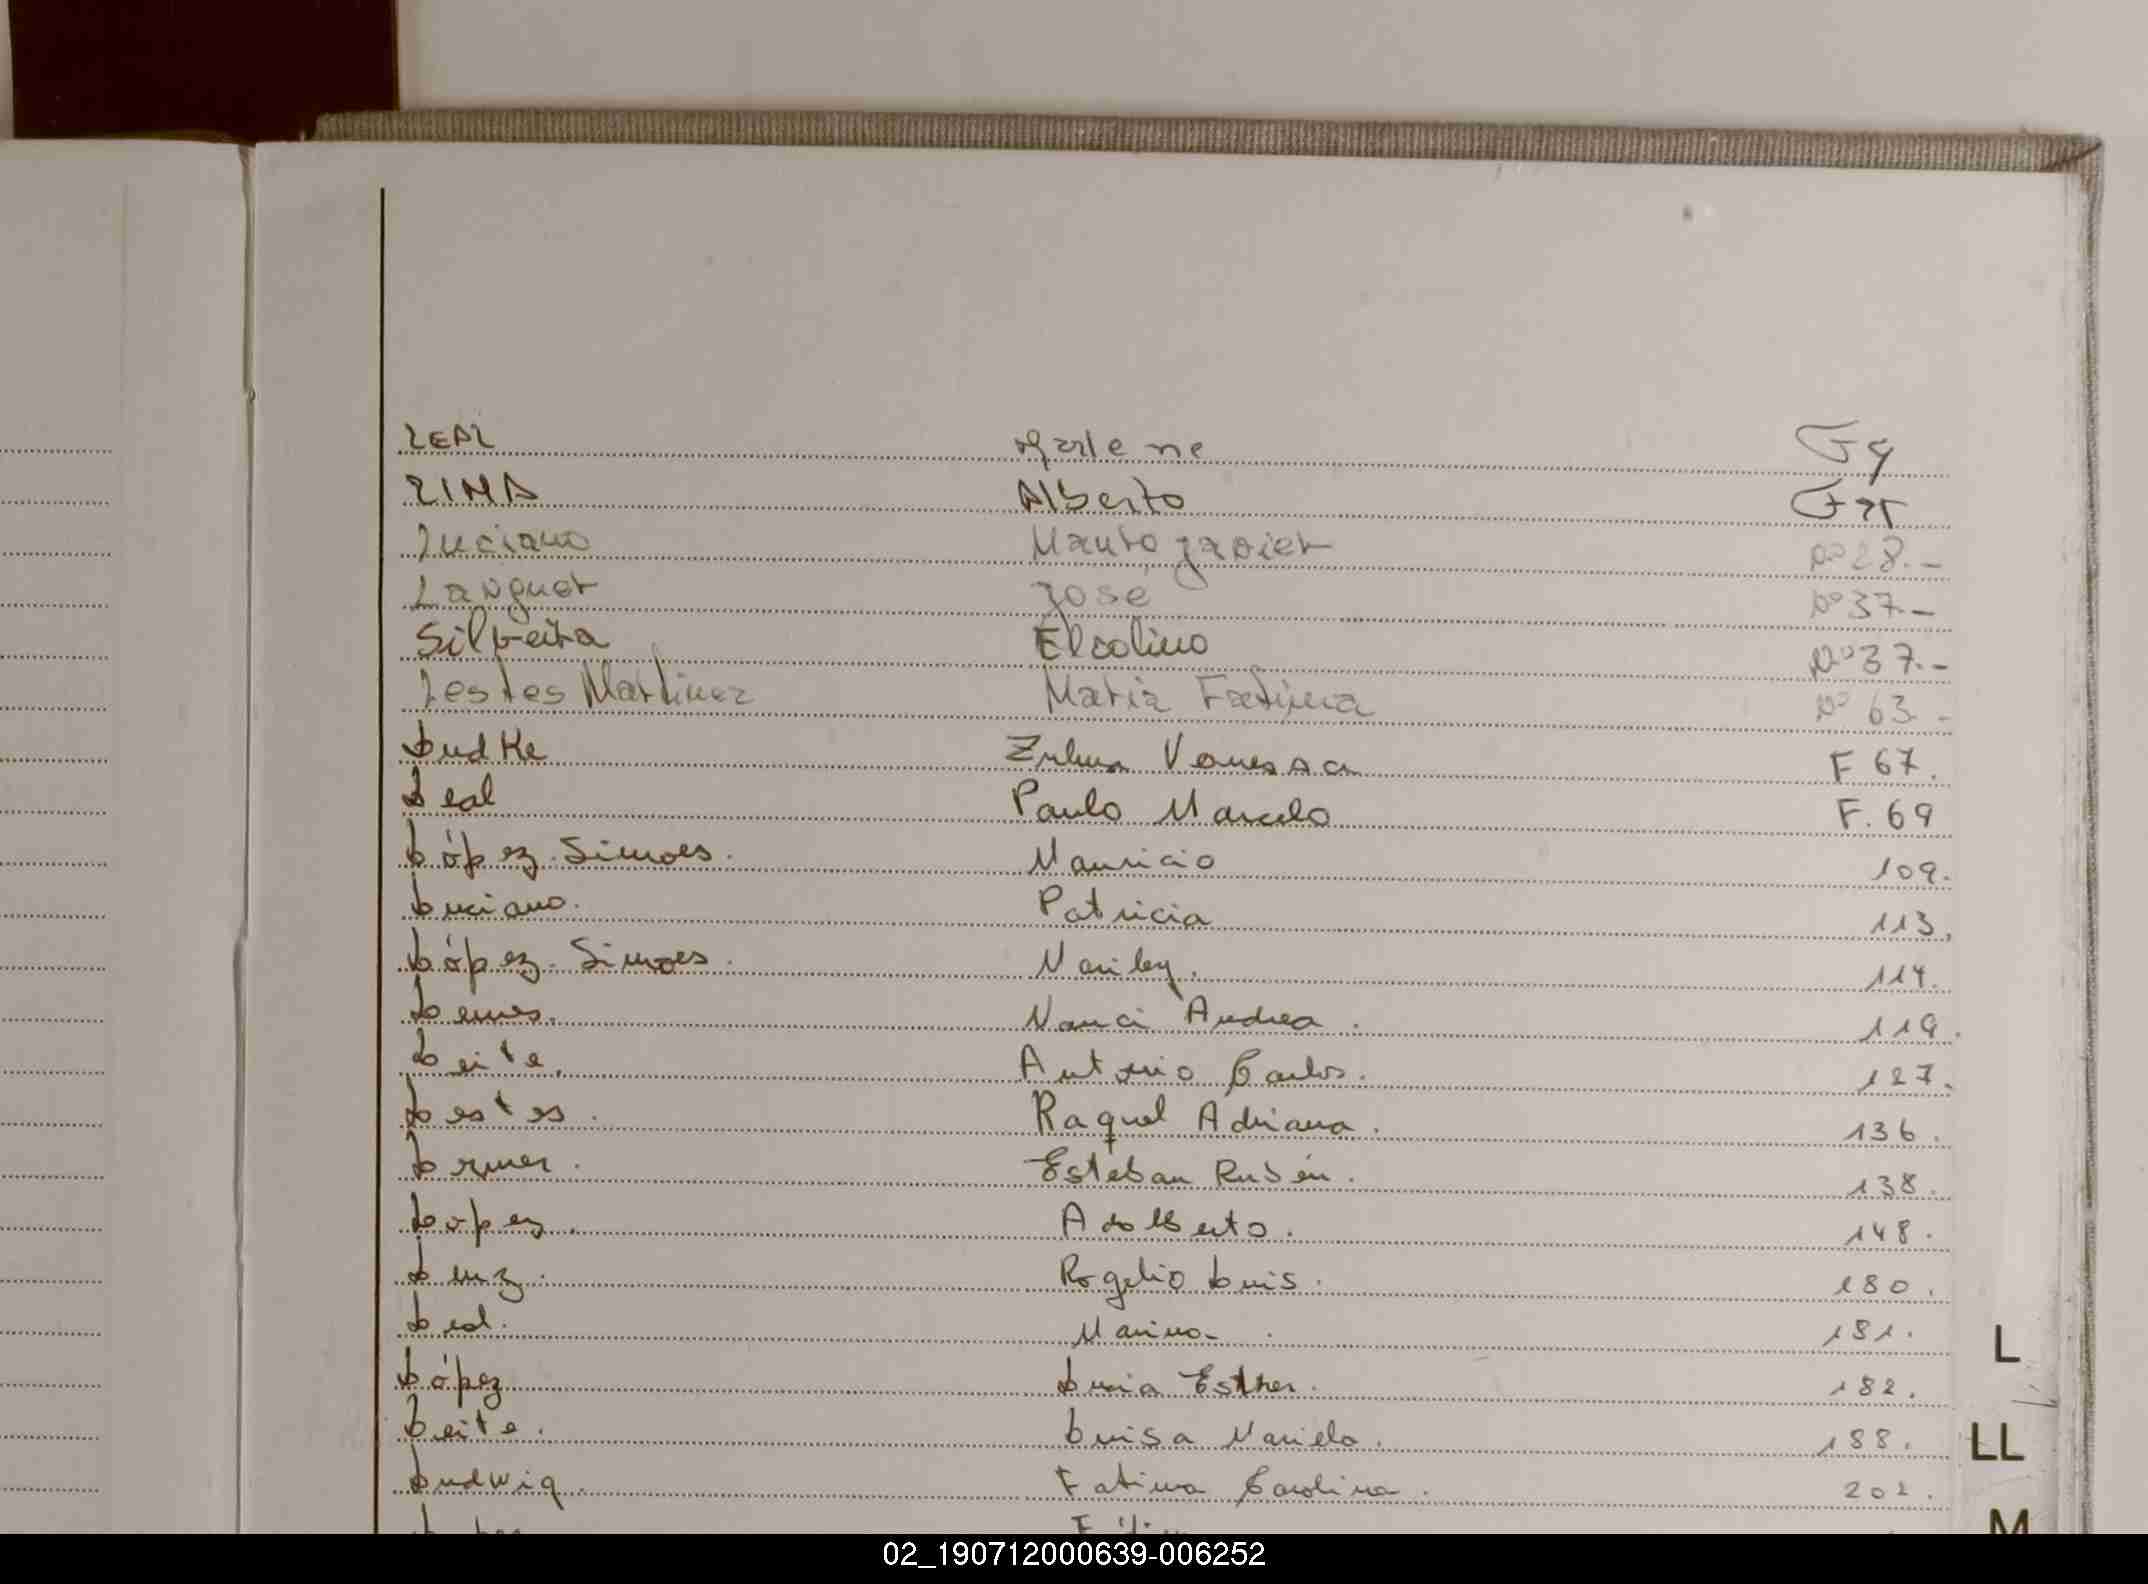 LEAL Marlene F 9
LIMA Alberto F 25
Luciano Mauro Javier Nº 28.-
Languer José Nº 37.-
Silveira Elcolino Nº 37.-
Lestes Martinez Maria Fatima Nº 63.-
Ludke Zulma Vanessa F 67.
Leal Paulo Marcelo F. 69
López Simoes. Mauricio 109.
Luciano. Patricia 113.
López Simoes. Mariley. 114.
Lemes. Nanci Andrea. 119.
Leite. Antonio Carlos. 127.
Lestes. Raquel Adriana. 136.
Esteban Rubén. 138.
Lopez. Adalberto. 148.
Rogelio Luis. 180.
Leal. Marina. 181.
López Lucia Esther. 182.
Leite. Luisa Mariela. 188.
Ludwig. Fatima Carolina. 202.
L
LL
M
02_190712000639-006252